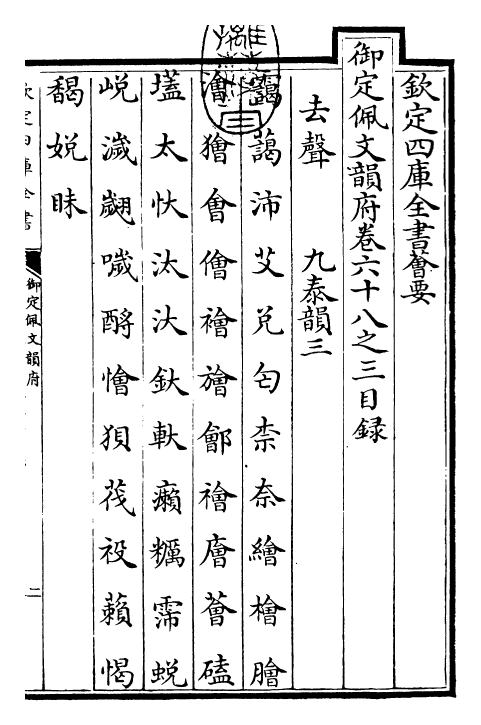 欽定四庫全書薈要
御定佩文韻府卷六十八之三目録
去聲 九泰韻三
靄藹沛艾兊匄柰奈繪檜膾
澮獪㑹儈襘旝鄶禬廥薈磕
壒太忕汰汏釱軑癩糲霈蜕
峗濊翽噦酹懀狽茷祋藾愒
馤娧眛
御定佩文韻府
二